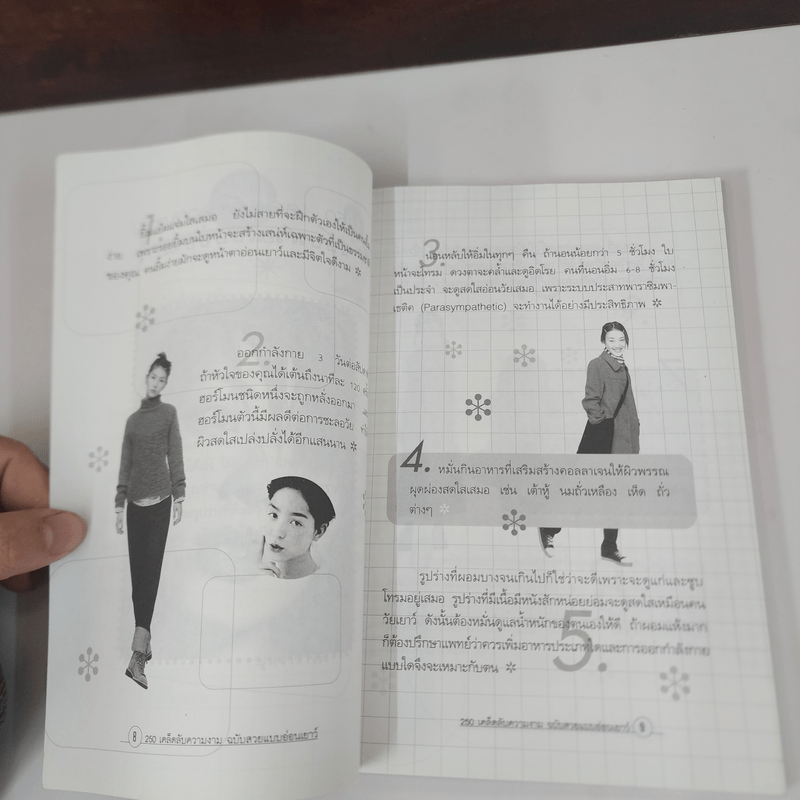 ยิ้มแย้มแจ่มใสเสมอ ยังไม่สายที่จะฝึกตัวเองให้เป็นคนยิ้ม
ง่าย เพราะรอยยิ้มบนใบหน้าจะสร้างเสน่ห์เฉพาะตัวที่เป็นธรรมชาติ
ของคุณ คนยิ้มง่ายมักจะดูหน้าตาอ่อนเยาว์และมีจิตใจดีงาม
2.
ออกกำลังกาย 3 วันต่อสัปดาห์
ถ้าหัวใจของคุณได้เต้นถึงนาทีละ 120
ฮอร์โมนชนิดหนึ่งจะถูกหลั่งออกมา
ฮอร์โมนตัวนี้มีผลดีต่อการชะลอวัย
ผิวสดใสเปล่งปลั่งได้อีกแสนนาน
8 250 เคล็ดลับความงาม ฉบับสวยแบบอ่อนเยาว์
3.
นอนหลับให้อิ่มในทุกๆ คืน ถ้านอนน้อยกว่า 5 ชั่วโมง ใบ
หน้าจะโทรม ดวงตาจะคล้ำและดูอิดโรย คนที่นอนอิ่ม 6-8 ชั่วโมง
เป็นประจำ จะดูสดใสอ่อนวัยเสมอ เพราะระบบประสาทพาราซิมพา-
เธติค (Parasympathetic) จะทำงานได้อย่างมีประสิทธิภาพ
4. หมั่นกินอาหารที่เสริมสร้างคอลลาเจนให้ผิวพรรณ
ผุดผ่องสดใสเสมอ เช่น เต้าหู้ นมถั่วเหลือง เห็ด ถั่ว
ต่างๆ
รูปร่างที่ผอมบางจนเกินไปก็ใช่ว่าจะดีเพราะจะดูแก่และซูบ
โทรมอยู่เสมอ รูปร่างที่มีเนื้อมีหนังสักหน่อยย่อมจะดูสดใสเหมือนคน
วัยเยาว์ ดังนั้นต้องหมั่นดูแลน้ำหนักของตนเองให้ดี ถ้าผอมแห้งมาก
ก็ต้องปรึกษาแพทย์ว่าควรเพิ่มอาหารประเภทใดและการออกกำลังกาย
แบบใดจึงจะเหมาะกับตน
5.
250 เคล็ดลับความงาม ฉบับสวยแบบอ่อนเยาว์ 9